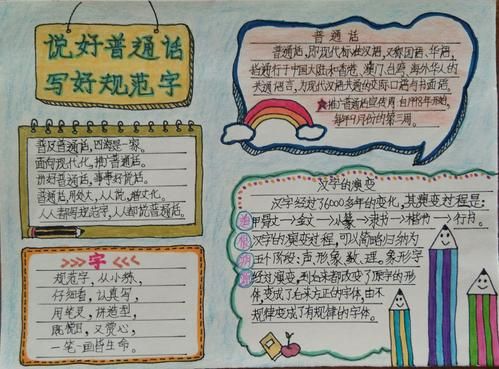 说好普通话
写好规范字
普通话
普通话,即现代标准汉语,又称国语、华语,
普通行于中国大陆和香港、澳门、台湾、海外华人的
共通语言,为现代汉语共通的交际口语与书面语。
推广普通话宣传周 自1998年开始,
每年9月份的第三周。
普及普通话,四海是一家。
面向现代化,推广普通话。
讲好普通话,事事好说话。
普通话,朋友多,人人说,增文化。
人人都写规范字,人人都说普通话。
汉字的演变
汉字经过了6000多年的变化,其演变过程是:
甲骨文→金文→小篆→隶书→楷书→行书。
汉字的演变过程,可以简略归纳为
五个阶段:声、形、象、数、理。象形字
经过演变,到后来都改变了原字的形
体,变成了后来方正的字体,由不
规律变成了有规律的字体。
字
规范字,从小练,
仔细看,认真写,
用笔灵,拼造型,
既悦目,又赏心,
一笔一画皆生命。